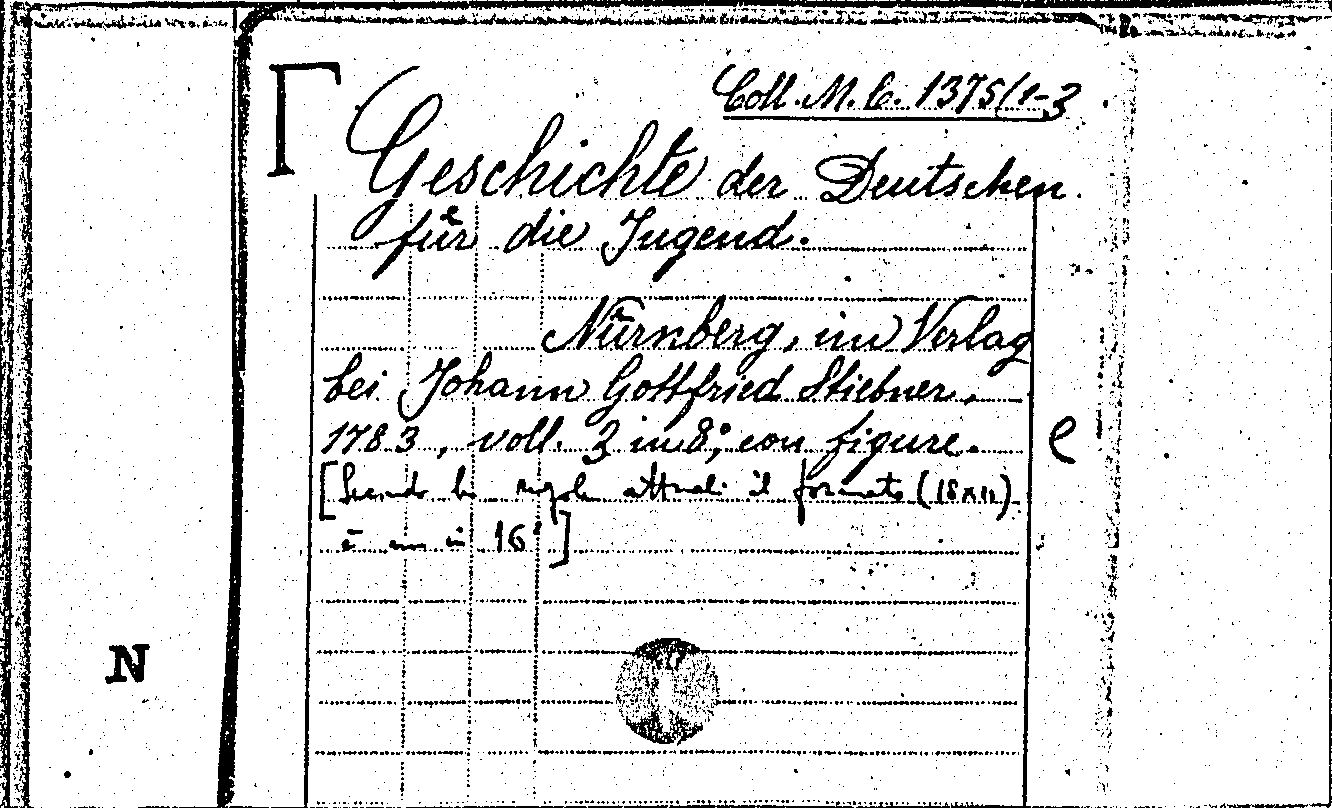 Coll. M. C. 1375/1-3
Geschichte der Deutschen
für die Jugend.
Nürnberg, im Verlag
bei Johann Gottfried Stiebner,
1783, voll. 3 in 8°, con figure.
[Secondo le regole attuali il formato (18x11)
è un in 16°]
e
N